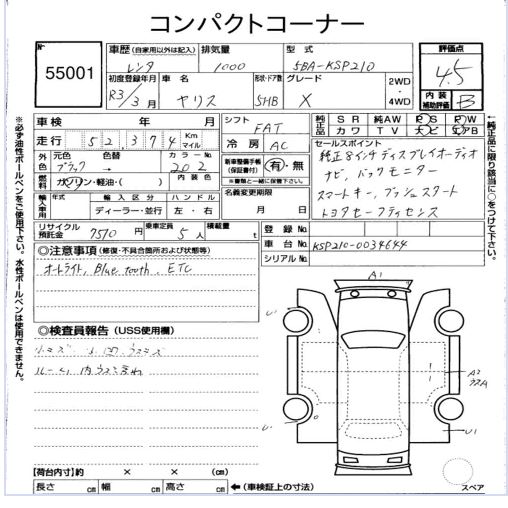 コンパクトコーナー
No. 55001
車歴 (自家用以外は記入) レンタ
排気量 1000
型式 5BA-KSP210
評価点 4.5
初度登録年月 R3/3月
車名 ヤリス
形状・ドア数 5HB
グレード X
2WD・4WD
内装補助評価 B
車検 年 月
シフト FAT
純正品 SR 純AW PS PW
カワ TV ナビ エアB
走行 52,374 Km マイル
冷房 AC
セールスポイント
純正8インチディスプレイオーディオ
ナビ, バックモニター
スマートキー, プッシュスタート
トヨタセーフティセンス
外色 元色 ブラック 色替 → カラーNo. 202
新車整備手帳(保証書付) 有・無
※書類と一緒に保管下さい。
燃料 ガソリン・軽油・( )
名義変更期限 月 日
輸入車用 年式 輸入区分 ハンドル
ディーラー・並行 左・右
リサイクル預託金 7510 円
乗車定員 5 人
積載量 t
登録No.
車台No. KSP210-0034644
シリアルNo.
◎注意事項 (修復・不具合箇所および状態等)
オートライト, Bluetooth, ETC
◎検査員報告 (USS使用欄)
小キズ
ルーム内ウス汚れ
A1
U1
A2
ウスA
U1
U1
【荷台内寸】約 × × (cm)
長さ cm 幅 cm 高さ cm ←(車検証上の寸法)
スペア
※必ず油性ボールペンをご使用下さい。水性ボールペンは使用できません。
←純正品に限り該当に○をつけて下さい。